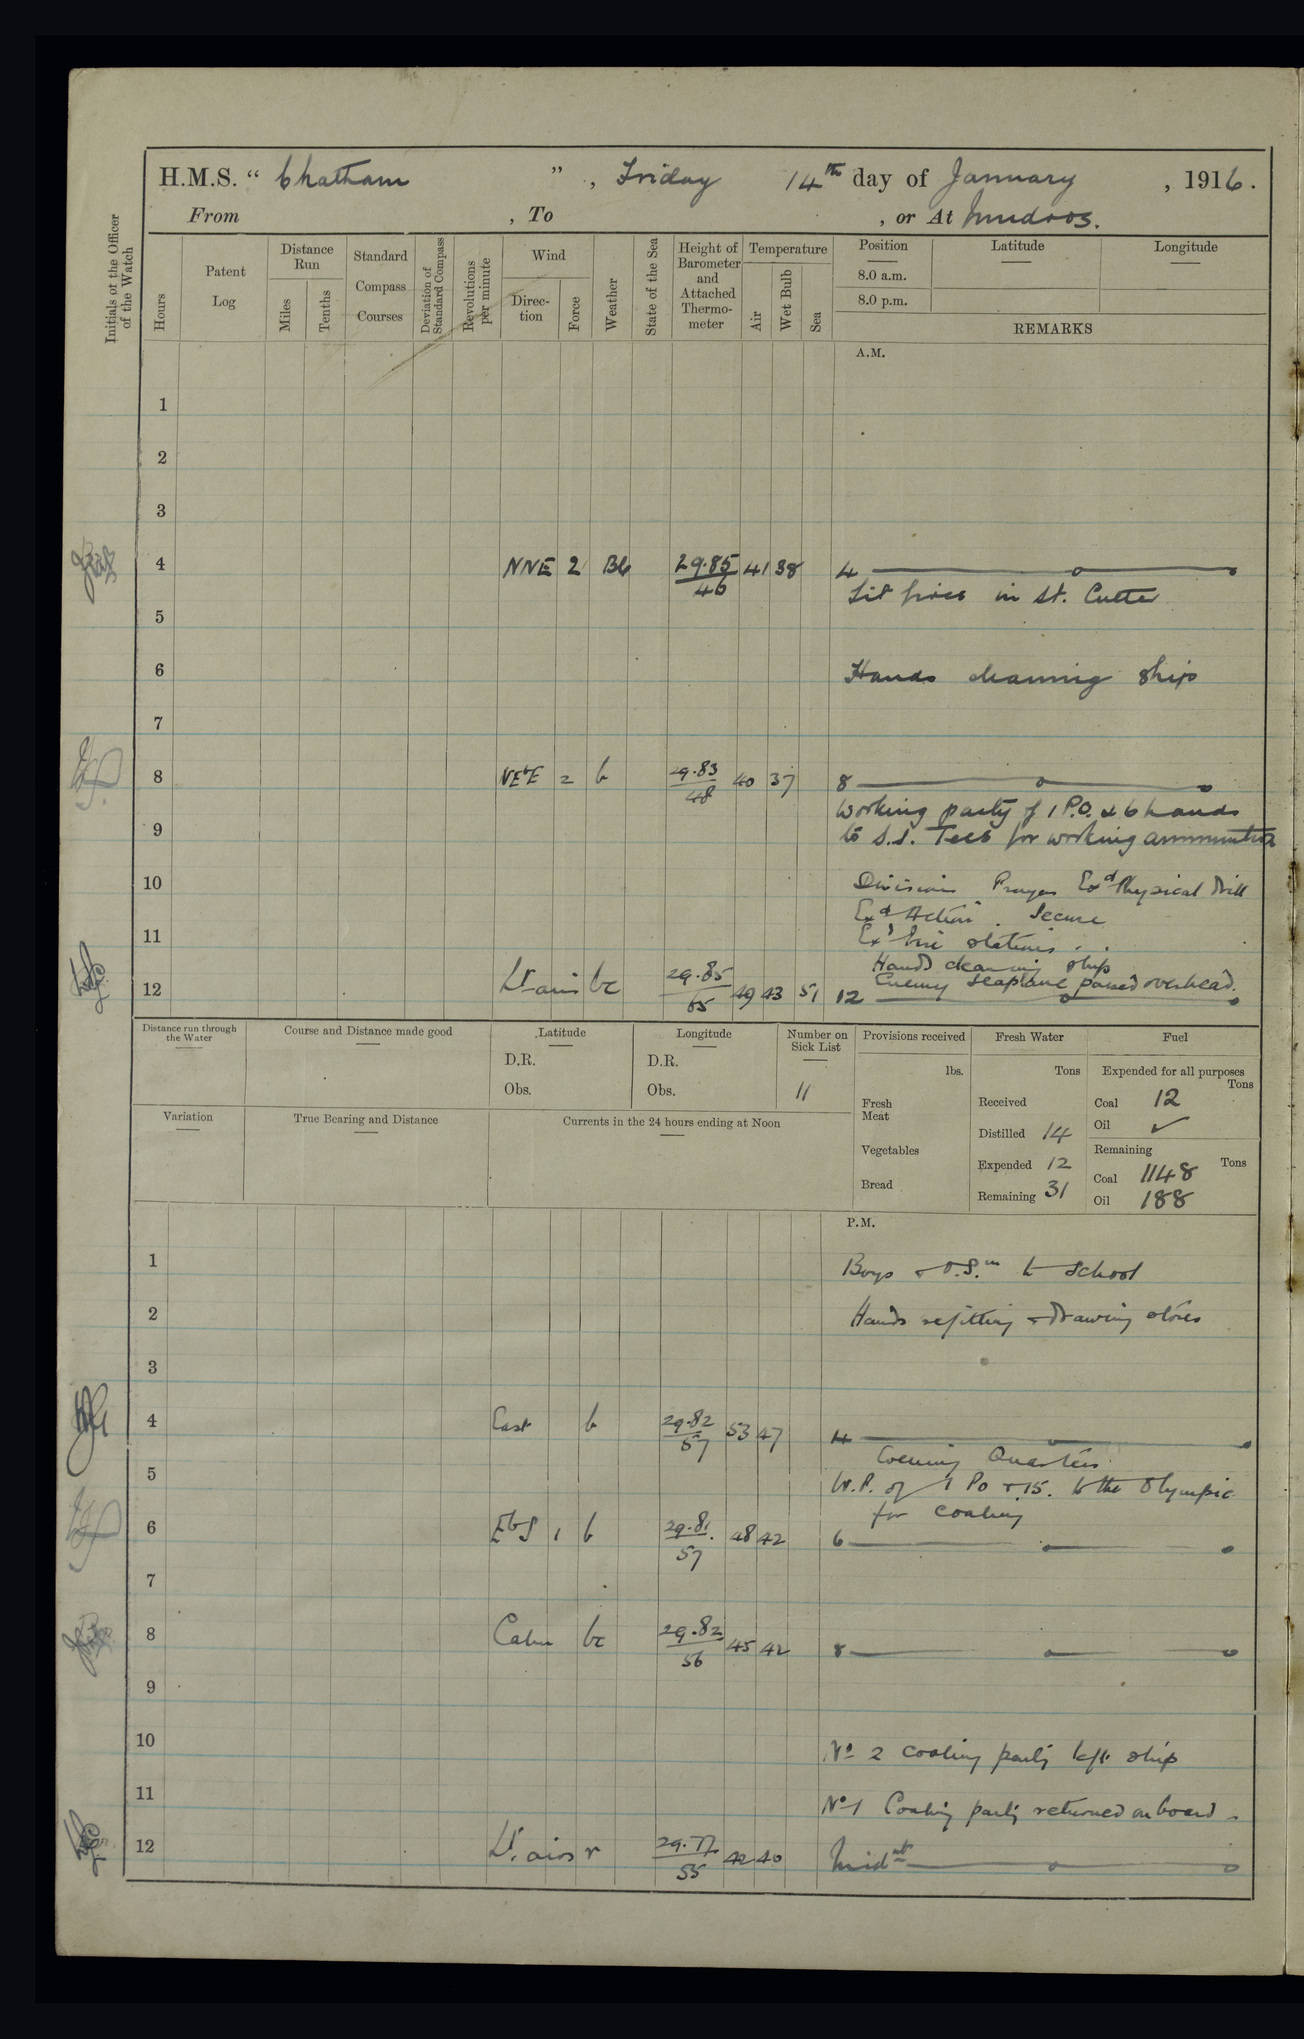 H.M.S. “ Chatham ” , Friday 14th day of January , 1916 .
From , To , or At Mudros.
Initials of the Officer of the Watch
Hours
Patent Log
Distance Run
Miles
Tenths
Standard Compass Courses
Deviation of Standard Compass
Revolutions per minute
Wind
Direc-tion
Force
Weather
State of the Sea
Height of Barometer and Attached Thermo-meter
Temperature
Air
Wet Bulb
Sea
Position
8.0 a.m.
8.0 p.m.
Latitude
Longitude
REMARKS
A.M.
1
2
3
4 NNE 2 Bb 29.85 41 38 4
46
Lit fires in St. Cutter
5
6 Hands cleaning ship
7
8 NEbE 2 b 29.83 40 37 8
48
Working party of 1 P.O. & 6 hands
9 to S.S. Tees for working ammunition
10 Divisions Prayers Exd Physical drill
Exd Action . Secure
11 Exd fire stations . .
Hands cleaning ship
Enemy Seaplane passed overhead.
12 Lt airs bc 29.85 49 43 51 12
65
Distance run through the Water
Course and Distance made good
Latitude
D.R.
Obs.
Longitude
D.R.
Obs.
Number on Sick List
11
Provisions received
lbs.
Fresh Meat
Vegetables
Bread
Fresh Water
Tons
Received
Distilled 14
Expended 12
Remaining 31
Fuel
Expended for all purposes
Tons
Coal 12
Oil ✓
Remaining
Tons
Coal 1148
Oil 188
Variation
True Bearing and Distance
Currents in the 24 hours ending at Noon
P.M.
1 Boys & O.S.m to School
2 Hands refitting & drawing stores
3
4 East b 29.82 53 47 4
57
Evening Quarters
5 W.P. of 1 Po & 15. to the Olympic
for coaling
6 EbS 1 b 29.81 48 42 6
57
7
8 Calm bc 29.82 45 42 8
56
9
10 No 2 coaling party left ship
11 No 1 Coaling party returned on board.
12 Lt. airs r 29.77 42 40 Midnt
55